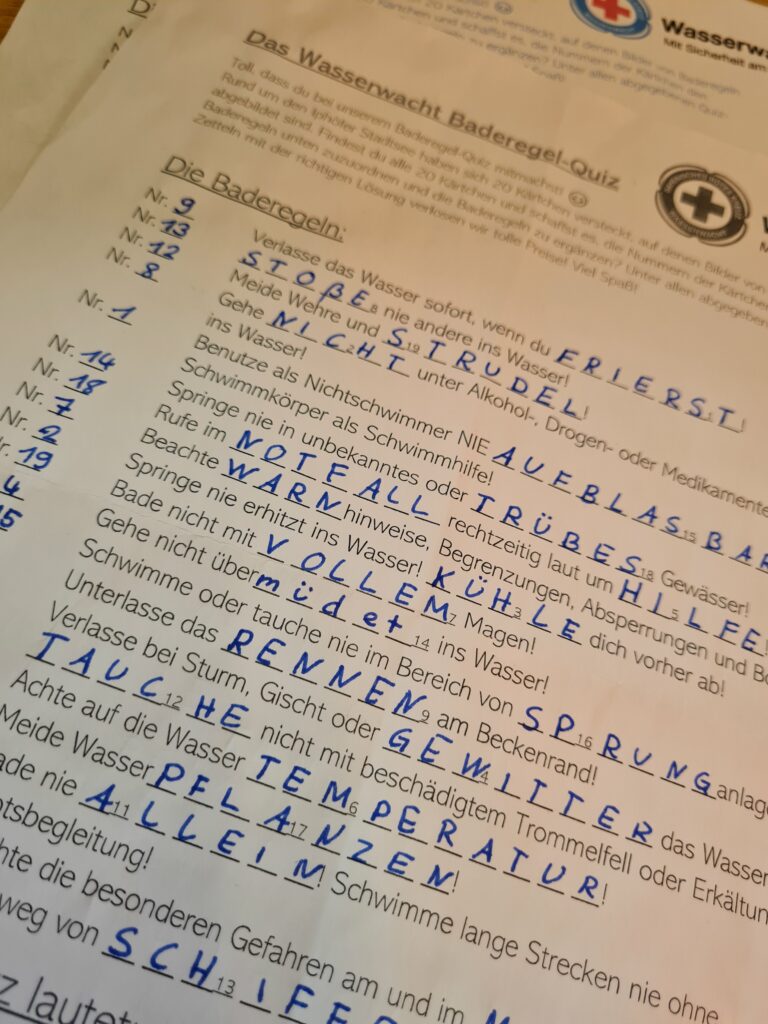 Wasserwa
Mit Sicherheit am
Das Wasserwacht Baderegel-Quiz
Toll, dass du bei unserem Baderegel-Quiz mitmachst! ☺
Rund um den Iphöfer Stadtsee haben sich 20 Kärtchen versteckt, auf denen Bilder von
abgebildet sind. Findest du alle 20 Kärtchen und schaffst es, die Nummern der Kärtchen
Baderegeln unten zuzuordnen und die Baderegeln zu ergänzen? Unter allen abgegebenen
Zetteln mit der richtigen Lösung verlosen wir tolle Preise! Viel Spaß!
Die Baderegeln:
Nr. 9 Verlasse das Wasser sofort, wenn du FRIERST!
Nr. 13 STOßE nie andere ins Wasser!
Nr. 12 Meide Wehre und STRUDEL!
Nr. 8 Gehe NICHT unter Alkohol-, Drogen- oder Medikamente
ins Wasser!
Nr. 1 Benutze als Nichtschwimmer NIE AUFBLASBAR
Schwimmkörper als Schwimmhilfe!
Nr. 14 Springe nie in unbekanntes oder TRÜBES Gewässer!
Nr. 18 Rufe im NOTFALL rechtzeitig laut um HILFE!
Nr. 7 Beachte WARNhinweise, Begrenzungen, Absperrungen und Bo
Nr. 2 Springe nie erhitzt ins Wasser! KÜHLE dich vorher ab!
Nr. 19 Bade nicht mit VOLLEM Magen!
4 Gehe nicht übermüdet ins Wasser!
15 Schwimme oder tauche nie im Bereich von SPRUNGanlage
Unterlasse das RENNEN am Beckenrand!
Verlasse bei Sturm, Gischt oder GEWITTER das Wasser
TAUCHE nicht mit beschädigtem Trommelfell oder Erkältun
Achte auf die Wasser TEMPERATUR!
Meide Wasser PFLANZEN!
ade nie ALLEIN! Schwimme lange Strecken nie ohne
otsbegleitung!
hte die besonderen Gefahren am und im
weg von SCHIFFE
z lautet